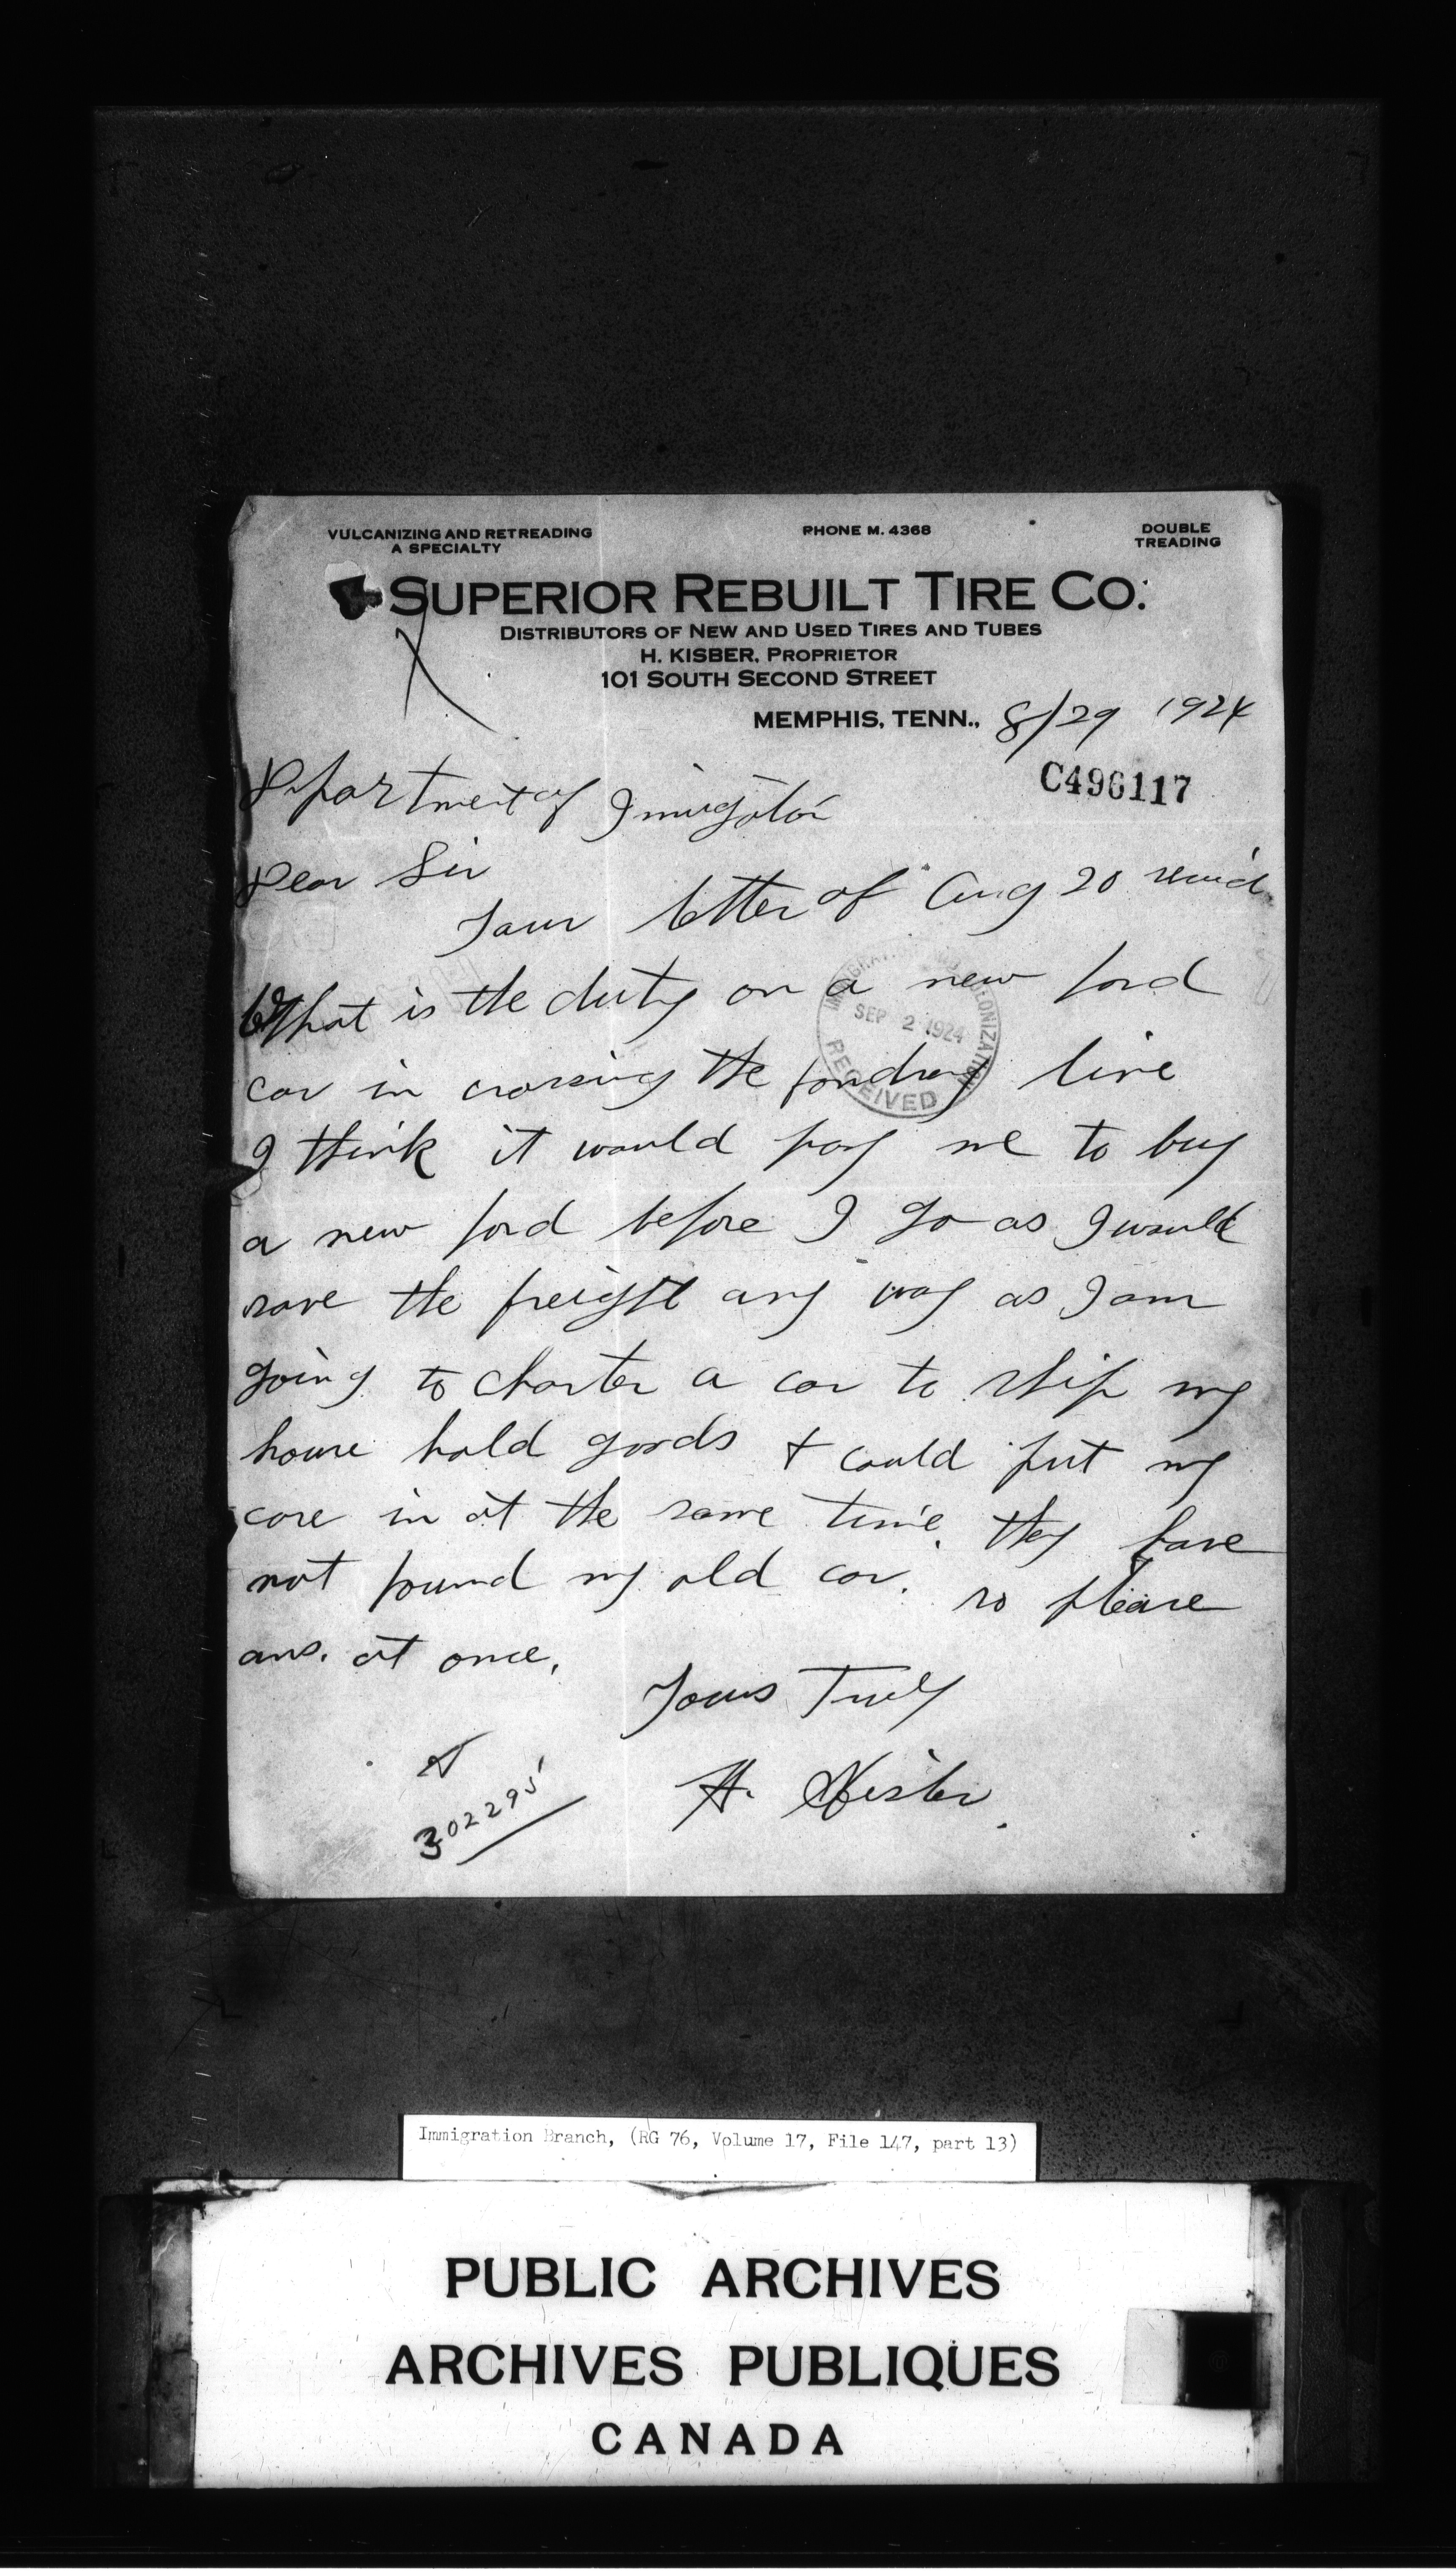 VULCANIZING AND RETREADING
A SPECIALTY
PHONE M. 4368
DOUBLE
TREADING
SUPERIOR REBUILT TIRE CO.
DISTRIBUTORS OF NEW AND USED TIRES AND TUBES
H. KISBER, PROPRIETOR
101 SOUTH SECOND STREET
MEMPHIS, TENN., 8/29 1924
C496117
Department of Imigation
Dear Sir
Your letter of Aug 20 recvid
What is the duty on a new ford
car in crossing the line
I think it would pay me to buy
a new ford before I go as I would
save the freight any way as I am
going to charter a car to ship my
house hold goods + could put my
care in at the same time. they have
not found my old car. so please
ans. at once.
Yours Truly
H. Kisber
302295
IMMIGRATION AND COLONIZATION
SEP 2 1924
RECEIVED
Immigration Branch, (RG 76, Volume 17, File 147, part 13)
PUBLIC ARCHIVES
ARCHIVES PUBLIQUES
CANADA